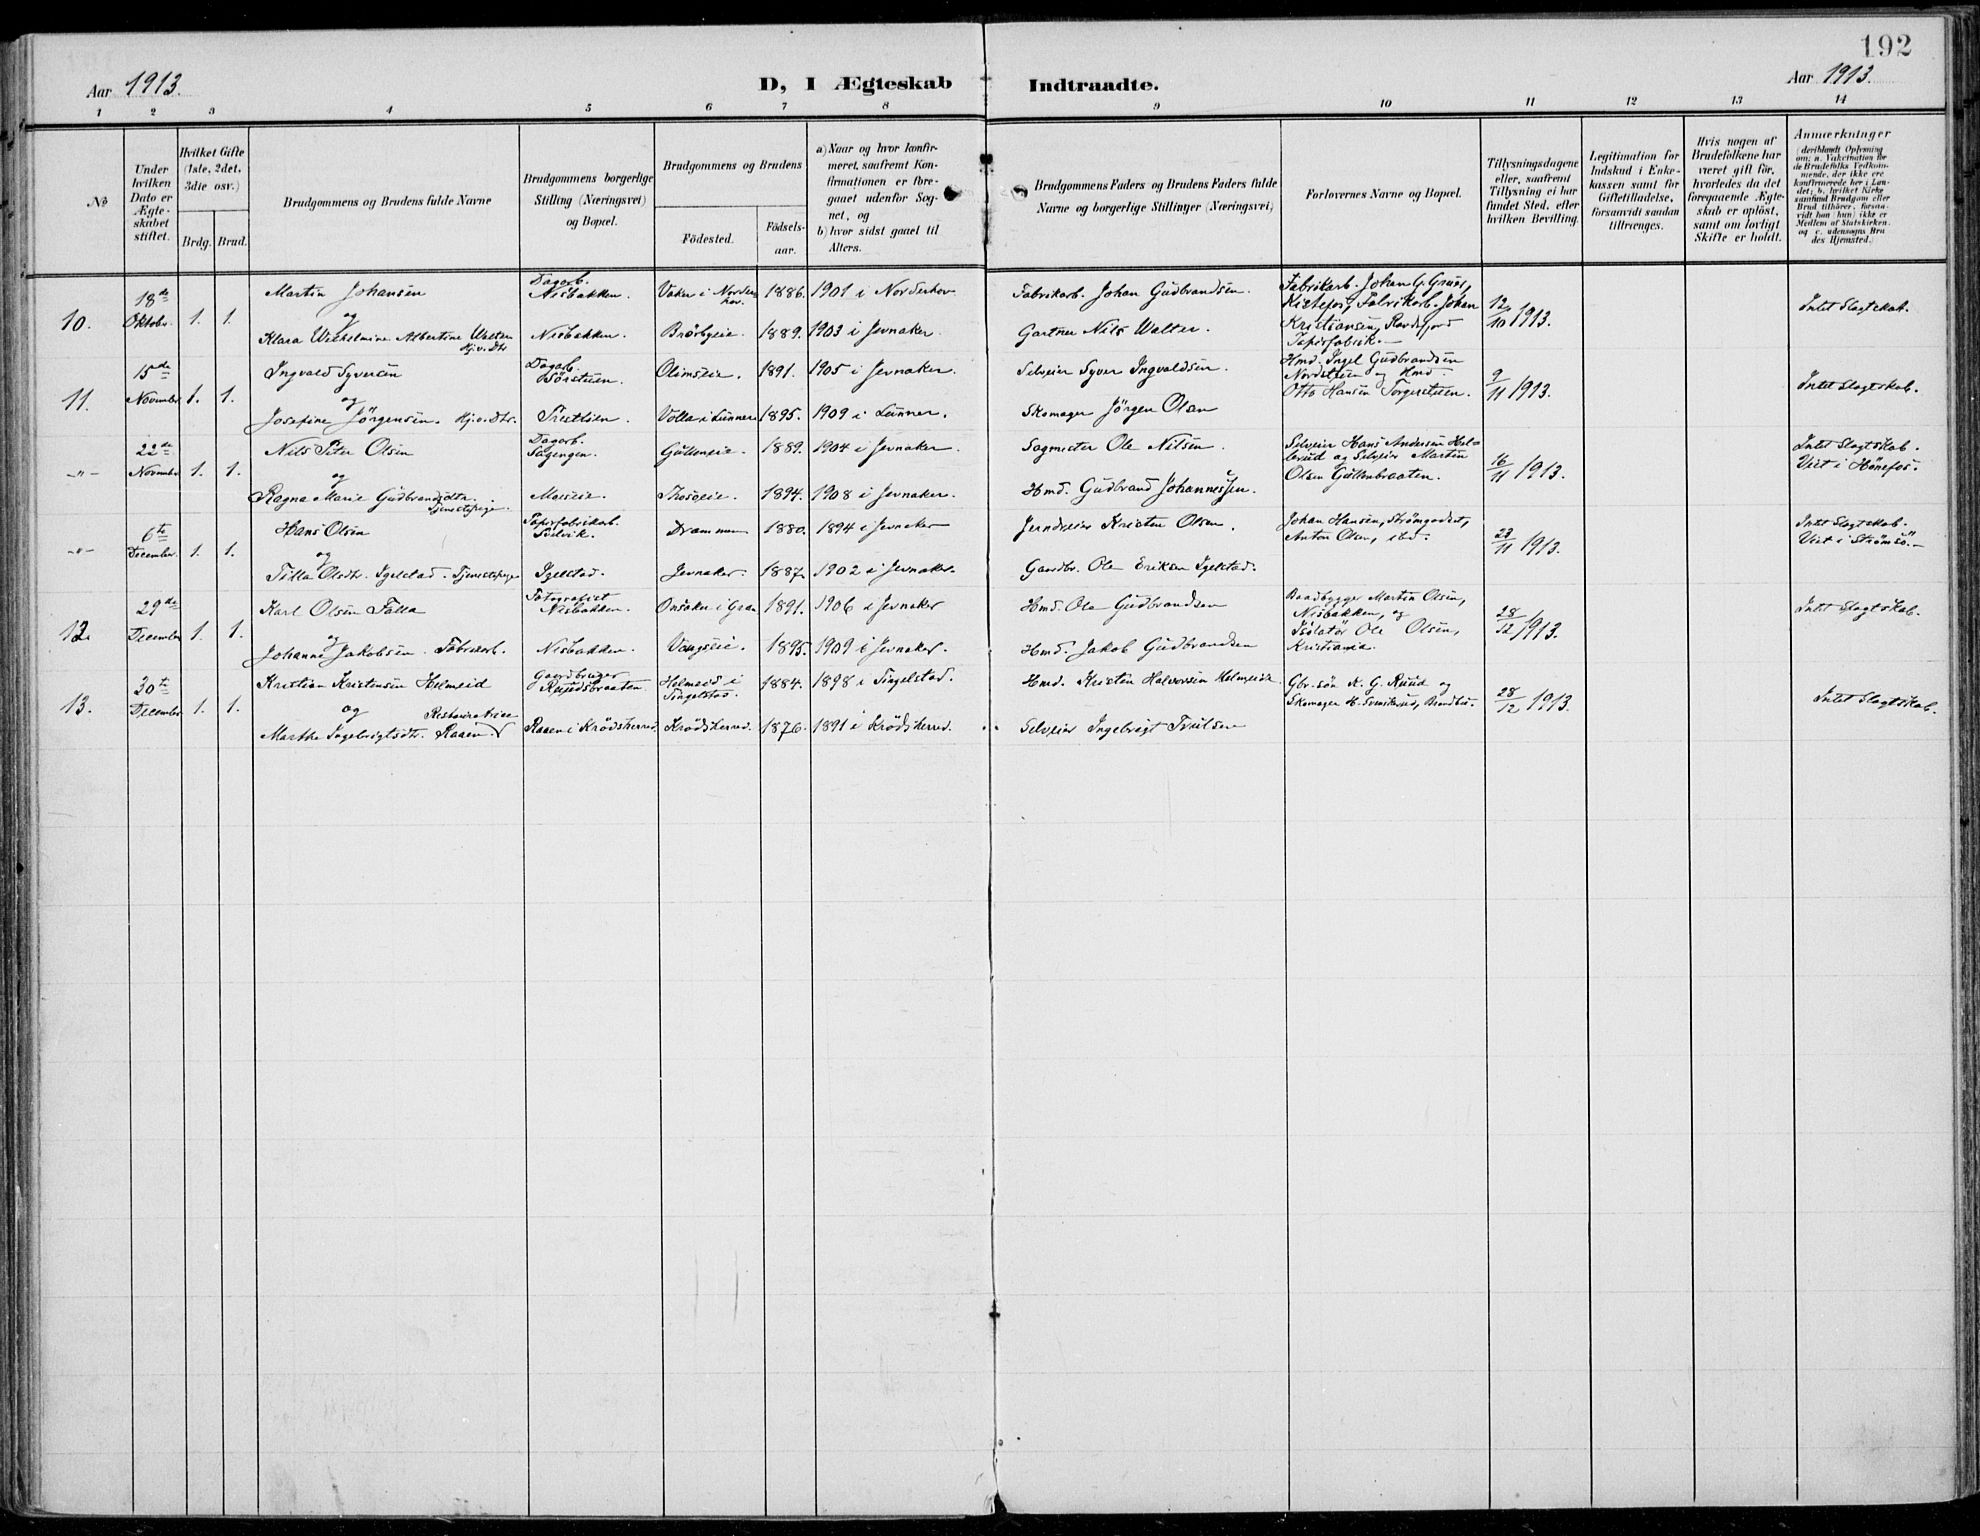 192
Aar 1913.
D, I Ægteskab Indtraadte.
Aar 1913.
1 2 3 4 5 6 7 8 9 10 11 12 13 14
No
Under hvilken Dato er Ægteskabet stiftet.
Hvilket Gifte (1ste, 2det, 3die osv.)
Brdg. Brud.
Brudgommens og Brudens fulde Navne
Brudgommens borgerlige Stilling (Næringsvei) og Bopæl.
Brudgommens og Brudens
Fødested.
Fødselsaar.
a) Naar og hvor konfirmeret, saafremt Konfirmationen er foregaaet udenfor Sognet, og
b) hvor sidst gaaet til Alters.
Brudgommens Faders og Brudens Faders fulde Navne og borgerlige Stillinger (Næringsvei)
Forlovernes Navne og Bopæl.
Tillysningsdagene eller, saafremt Tillysning ei har fundet Sted, efter hvilken Bevilling.
Legitimation for Indskud i Enkekassen samt for Giftetilladelse, forsaavidt saadan tiltrænges.
Hvis nogen af Brudefolkene har været gift før, hvorledes da det foregaaende Ægteskab er opløst, samt om lovligt Skifte er holdt.
Anmærkninger (deriblandt Oplysning om: a. Vakcination for de Brudefolks Vedkommende, der ikke ere konfirmerede her i Landet; b. hvilket Kirkesamfund Brudgom eller Brud tilhører, forsaavidt han (hun) ikke er Medlem af Statskirken. og c. udensogns Brudes Hjemsted.
10. 18de Oktobr. 1. 1.
Martin Johansen Dagarb. Nisbakken. Vaker i Norderhov. 1886. 1901 i Norderhov Fabrikarb. Johan Gudbrandsen.
og
Klara Wilhelmine Albertine Walter Hj.v.Dtr. Nisbakken. Brørbyeie. 1889. 1903 i Jevnaker. Gartner Nils Walter.
Fabrikarb. Johan G. Kistefos, Fabrikarb. Johan Kristiansen, Randsfjord Papirfabrik.
12/10 1913. Intet Slagtskab.
11. 15de Novembr. 1. 1.
Ingvald Syversen Dagarb. Børstuen. Olimseie. 1891. 1905 i Jevnaker. Selveier Syver Ingvaldsen.
og
Josefine Jörgensen. Hj.v.Dtr. Prestlien. Volla i Lunner 1895. 1909 i Lunner. Skomager Jörgen Olsen
Hmd. Ingel Gudbrandsen Nordstuen og Hmd. Otto Hansen Torgerstuen.
9/11 1913. Intet Slagtskab.
-"- 22de Novembr 1. 1.
Nils Peter Olsen Dagarb. Sagengen. Gulleneie. 1889. 1904 i Jevnaker. Sagmester Ole Nilsen
og
Ragna Marie Gudbrandsdtr. Tjenestepige. Moeseie. Thoseie. 1894. 1908 i Jevnaker. Hmd. Gudbrand Johannessen.
Selveier Hans Andersen og Selveier Martin Olsen Gullenbraaten.
16/11 1913. Intet Slagtskab. Viet i Hønefos.
-"- 6te December. 1. 1.
Hans Olsen Papirfabrikarb. Drammen 1880. 1894 i Jevnaker Kristen Olsen.
og
Tilla Olsdtr. Igelstad. Tjenestepige Igelstad. Jevnaker. 1887. 1902 i Jevnaker. Gaardbr. Ole Eriksen Igelstad.
Johan Hansen, Strømgodset, Anton Olsen, ibd.
23/11 1913. Intet Slagtskab. Viet i Strømsø.
12. 29de December 1. 1.
Karl Olsen Falla Fotografist Nisbakken. Onsaker i Gran 1891. 1906 i Jevnaker Hmd. Ole Gudbrandsen
og
Johanne Jakobsen Fabrikarb. Nisbakken. Vangseie. 1895. 1909 i Jevnaker. Hmd. Jakob Gudbrandsen
Baadbygger Martin Olsen, Nisbakken, og Isolatør Ole Olsen, Kristiania.
28/12 1913. Intet Slagtskab.
13. 30te December 1. 1.
Kristian Kristensen Helmeid Gaardbruger Ruudsbraaten. Helmeid i Tingelstad. 1884. 1898 i Tingelstad. Hmd. Kristen Halvorsen Helmeid.
og
Marthe Ingebrigtsdtr. Raaen. Raaen i Krödsherred. Krödsherred. 1876. 1891 i Krödsherred. Selveier Ingebrigt Truلsen
Gbr.sön K. G. Ruud og Skomager H. Svenskerud, Brandbu.
28/12 1913. Intet Slagtskab.